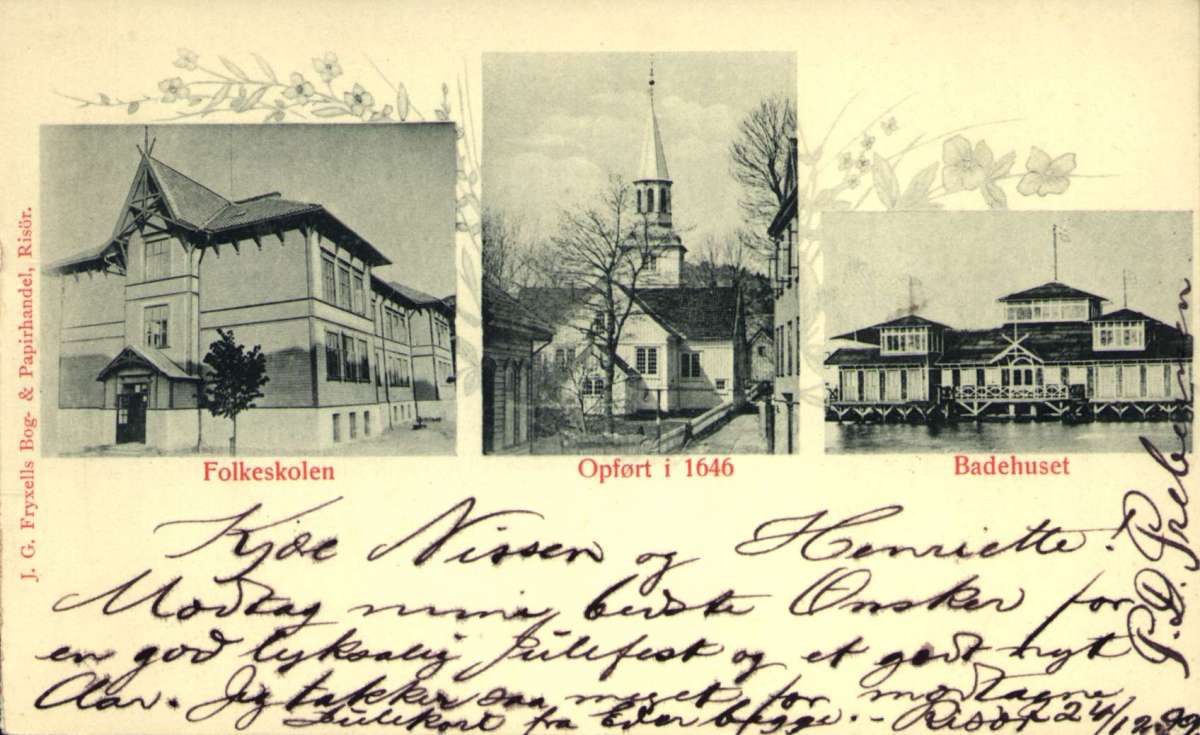 J. G. Fryxells Bog- & Papirhandel, Risör.
Folkeskolen
Opført i 1646
Badehuset
Kjӕe Nissen og Henriette!
Modtag mine bedste Ønsker for
en god lyksalig Julefest og et godt nyt
Aar. Jeg takker saa meget for modtagne
Julekort fra Eder begge. - Risør 24/12 99
P. D.